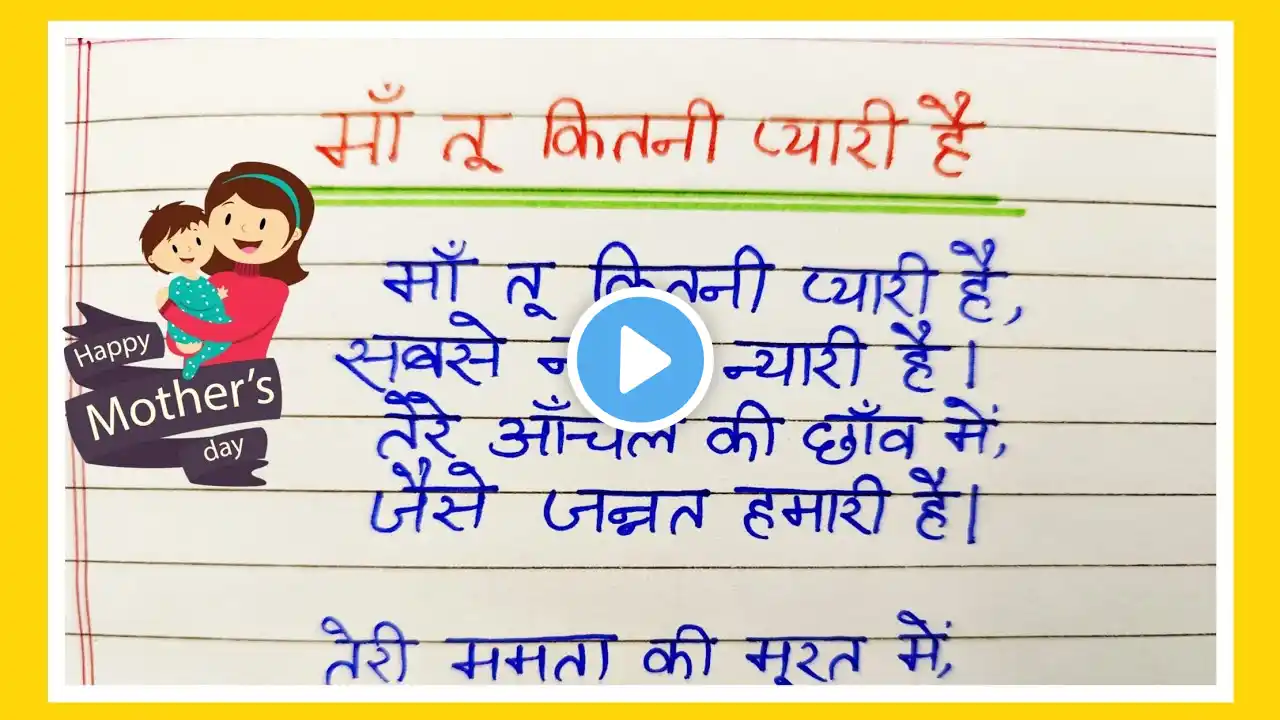 माँ तू कितनी प्यारी है
Happy
Mother's
day
माँ तू कितनी प्यारी है,
सबसे न्यारी है।
तेरे आँचल की छाँव में,
जैसे जन्नत हमारी है।
तेरी ममता की मूरत में,